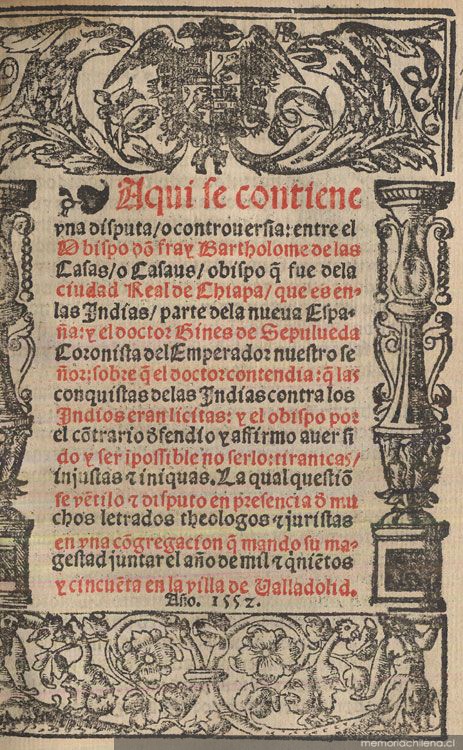 Aqui se contiene
vna disputa/o controuersia: entre el
Obispo dõ fray Bartholome de las
Casas/o Casaus/obispo q̃ fue dela
ciudad Real de Chiapa/que es en
las Indias/parte dela nueua Espa-
ña: y el doctor Gines de Sepulueda
Coronista del Emperador nuestro se
ñor: sobre q̃ el doctor contendia: q̃ las
conquistas delas Indias contra los
Indios eran licitas: y el obispo por
el cõtrario dfendio y affirmo auer si
do y ser ĩpossible no serlo: tiranicas/
injustas ⁊ iniquas. La qual questiõ
se vẽtilo ⁊ disputo en presencia d̃ mu
chos letrados theologos ⁊ juristas
en vna cõgregacion q̃ mando su ma-
gestad juntar el año de mil ⁊ q̃niẽtos
y cincuẽta en la villa de Valladolid.
Año. 1552.
memoriachilena.cl